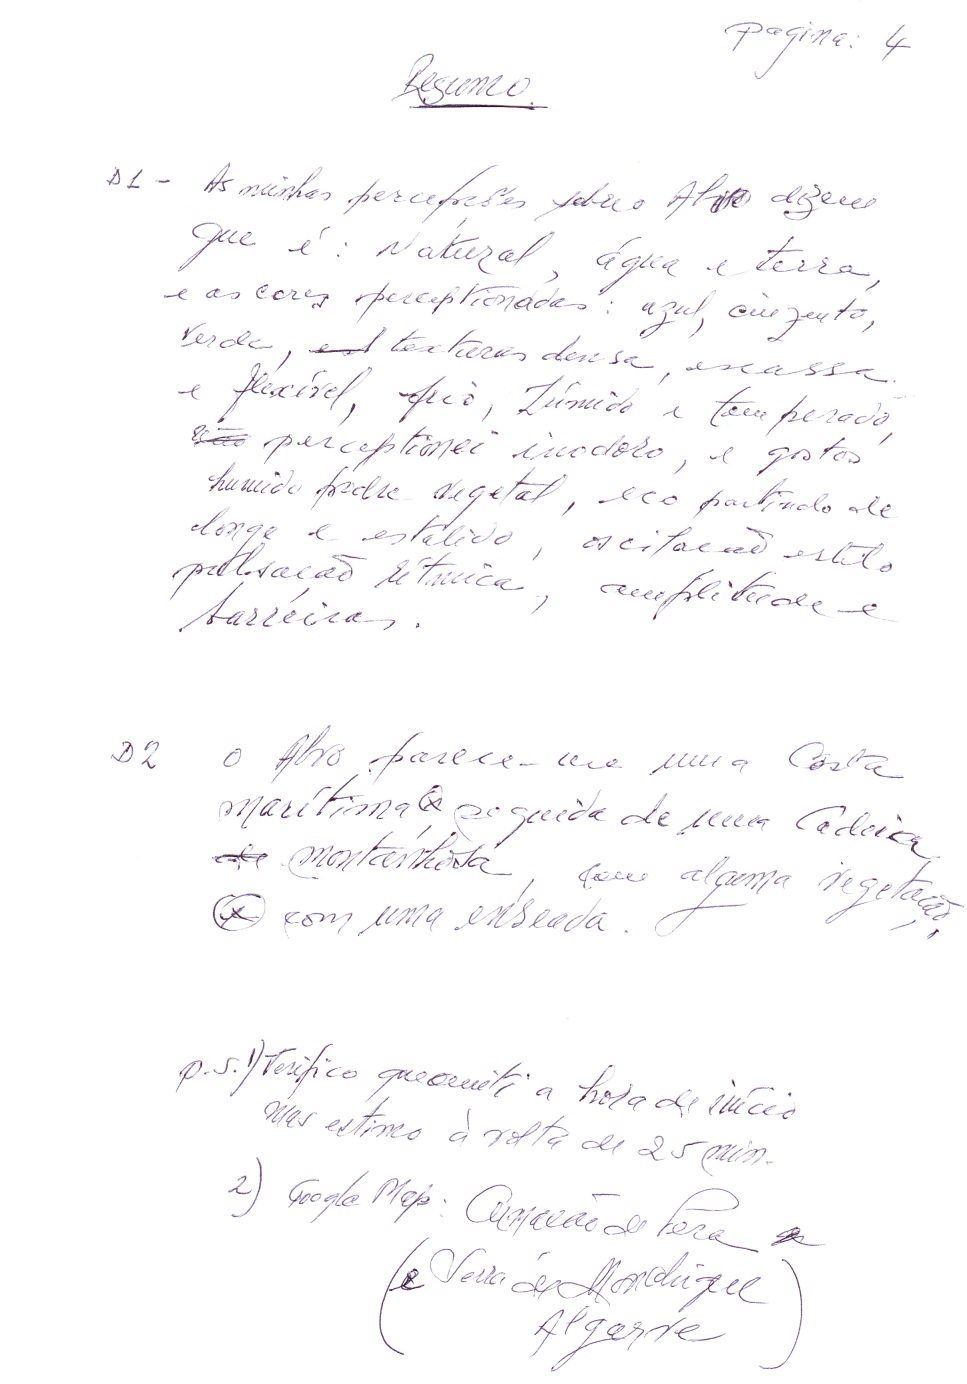 pagina: 4
Resumo
D1 - As minhas percepções sobre o Alvo dizem
que é: Natural, água e terra,
e as cores perceptionadas: azul, cinzento,
verde, texturas densa, escassa
e flexível, frio, húmido e temperado,
não perceptionei inodoro, e gostos
humido podre vegetal, eco partindo de
longe e estalido, oscilação estilo
pulsação rítmica, amplitude e
barreiras.
D2 O Alvo parece-me uma Costa
marítima (x) seguida de uma Cadeia
montanhosa, com alguma vegetação,
(x) com uma enseada.
p.s. 1) Verifico que omiti a hora de início
mas estimo à volta de 25 min.
2) Google Map: Armação de Pera
(e Serra de Monchique
Algarve)